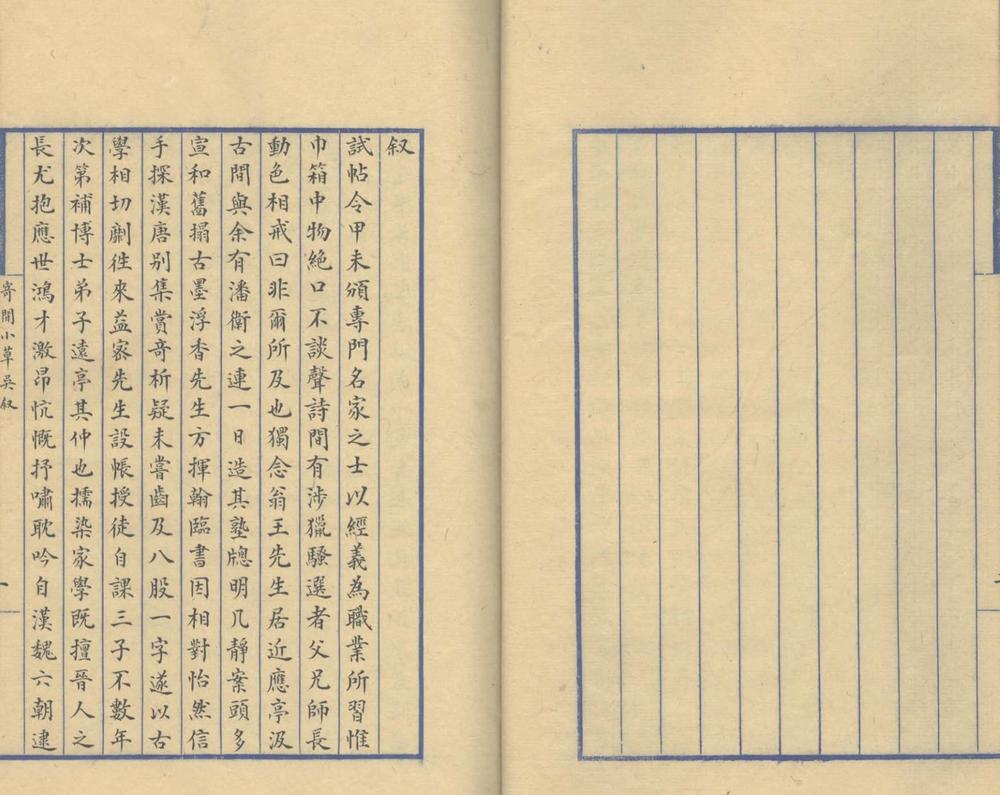 叙
試帖令甲未頒專門名家之士以經義為職業所習惟
巾箱中物絶口不談聲詩間有涉獵騷選者父兄師長
動色相戒曰非爾所及也獨念翁王先生居近應亭汲
古閒與余有潘衛之連一日造其塾牕明几靜案頭多
宣和舊搨古墨浮香先生方揮翰臨書因相對怡然信
手探漢唐别集賞竒析疑未嘗齒及八股一字遂以古
學相切劘徃來益宻先生設帳授徒自課三子不數年
次第補博士弟子遠亭其仲也擩染家學既擅晉人之
長尤抱應世鴻才激昂忼慨抒嘯耽吟自漢魏六朝逮
寄閒小草吳叙
一